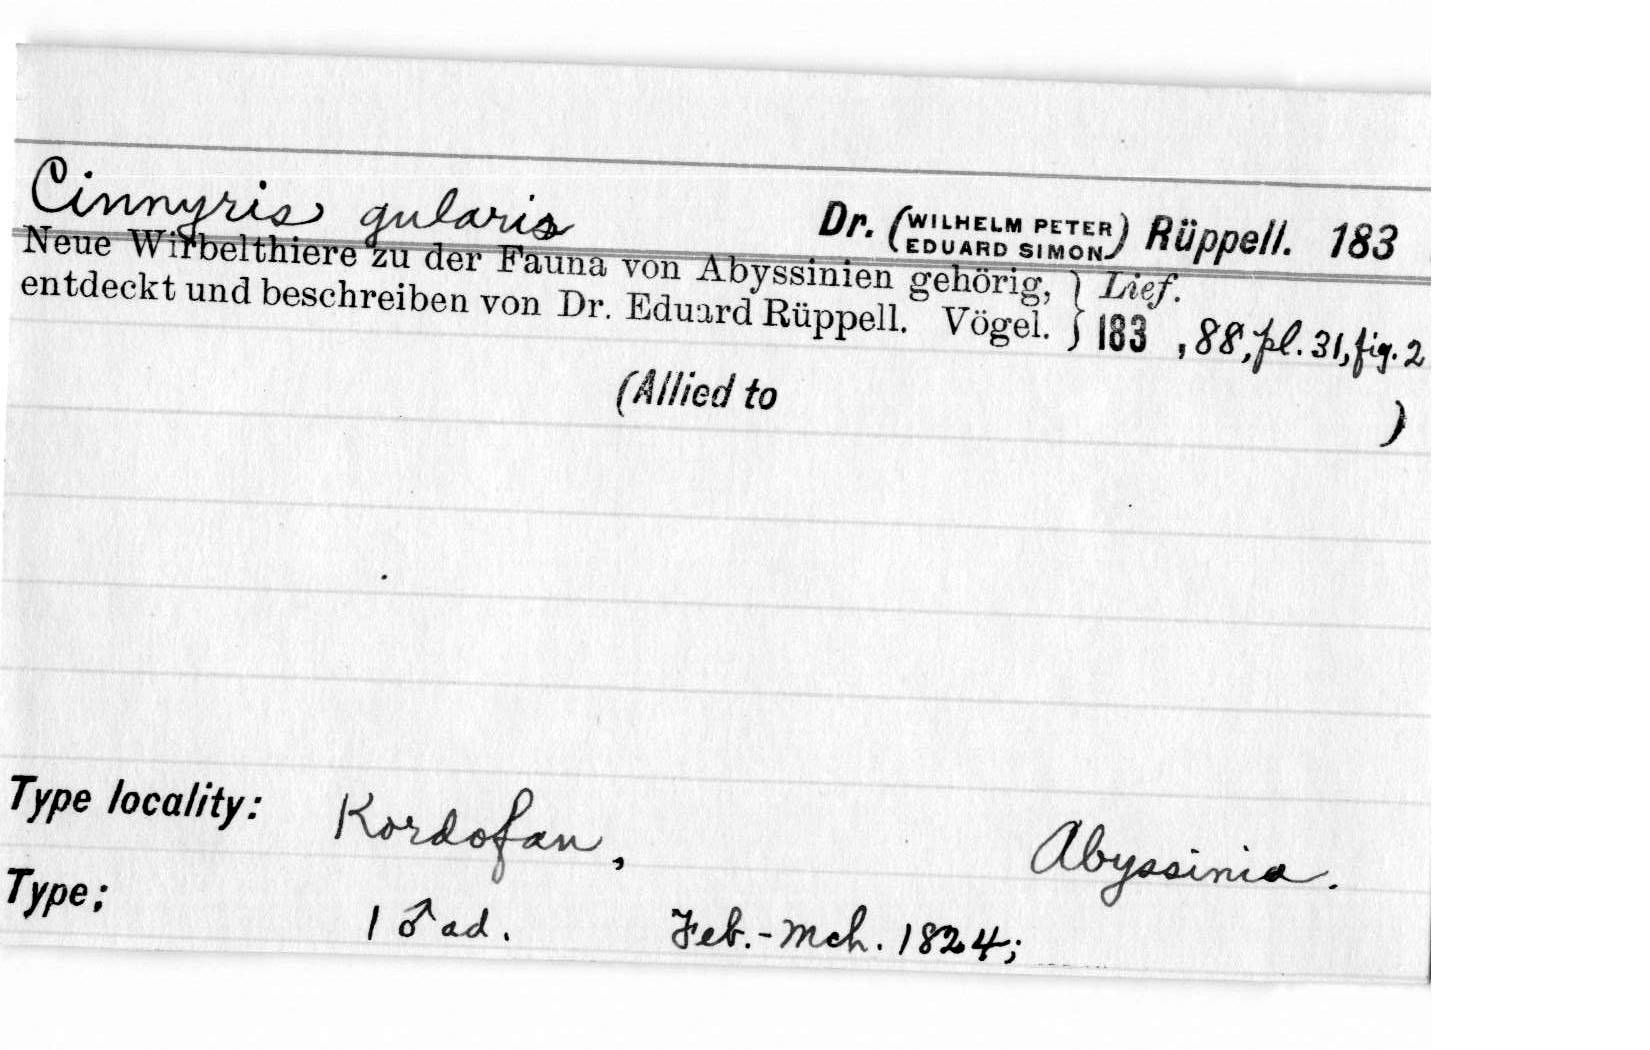 Cinnyris gularis Dr. (WILHELM PETER EDUARD SIMON) Rüppell. 183
Neue Wirbelthiere zu der Fauna von Abyssinien gehörig, } Lief.
entdeckt und beschreiben von Dr. Eduard Rüppell. Vögel. } 183 , 88, pl. 31, fig. 2
(Allied to )
Type locality: Kordofan, Abyssinia.
Type; 1 ♂ ad. Feb.-Mch. 1824;